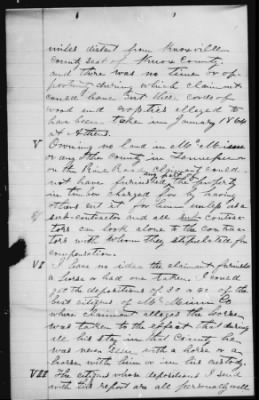 miles distant from Knoxville
county seat of Knox County
and there was no time or op-
portunity during which claimant
could have cut the cords of
wood and cross ties alleged to
have been taken in January 1864
at Athens.
V Owning no land in McMinn
or any other County in Tennessee
on the River Road Claimant could
not have furnished the property
in timber charged for by having
others cut it for him unless as a
sub-contractor and all sub contrac-
tors can look alone to the contrac-
tors with whom they stipulated for
compensation.
VI I have no idea the claimant furnished
a horse or had one taken. I could
get the depositions of 30 or 50 of the
best citizens of McMinn Co
where claimant alleges the horse
was taken to the effect that during
all his stay in that County he
was never seen with a horse or a
horse with him or in his custody.
VII The citizens whose depositions I send
with this report are all personally well